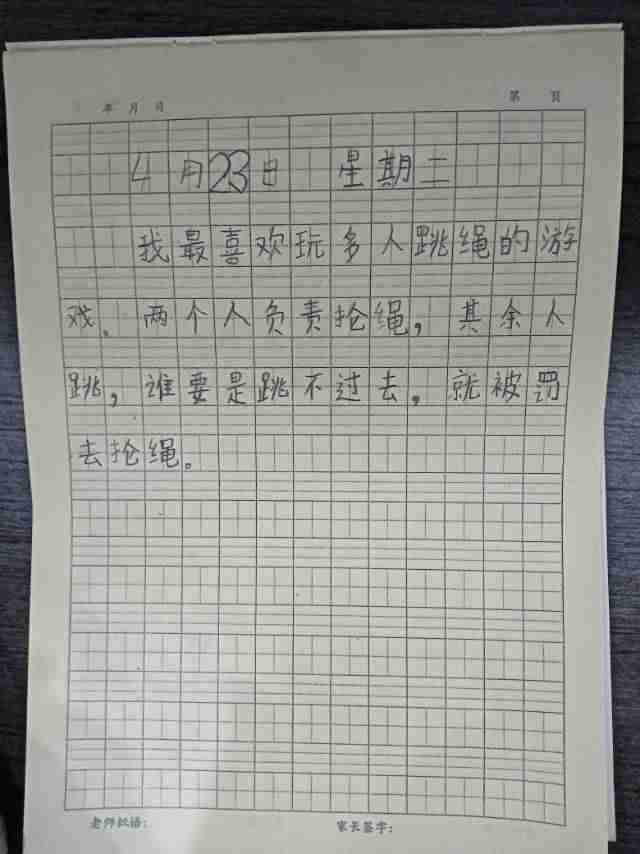 年 月 日 第 页
4月23日 星期二
我最喜欢玩多人跳绳的游
戏。两个人负责抡绳，其余人
跳，谁要是跳不过去，就被罚
去抡绳。
老师批语： 家长签字：